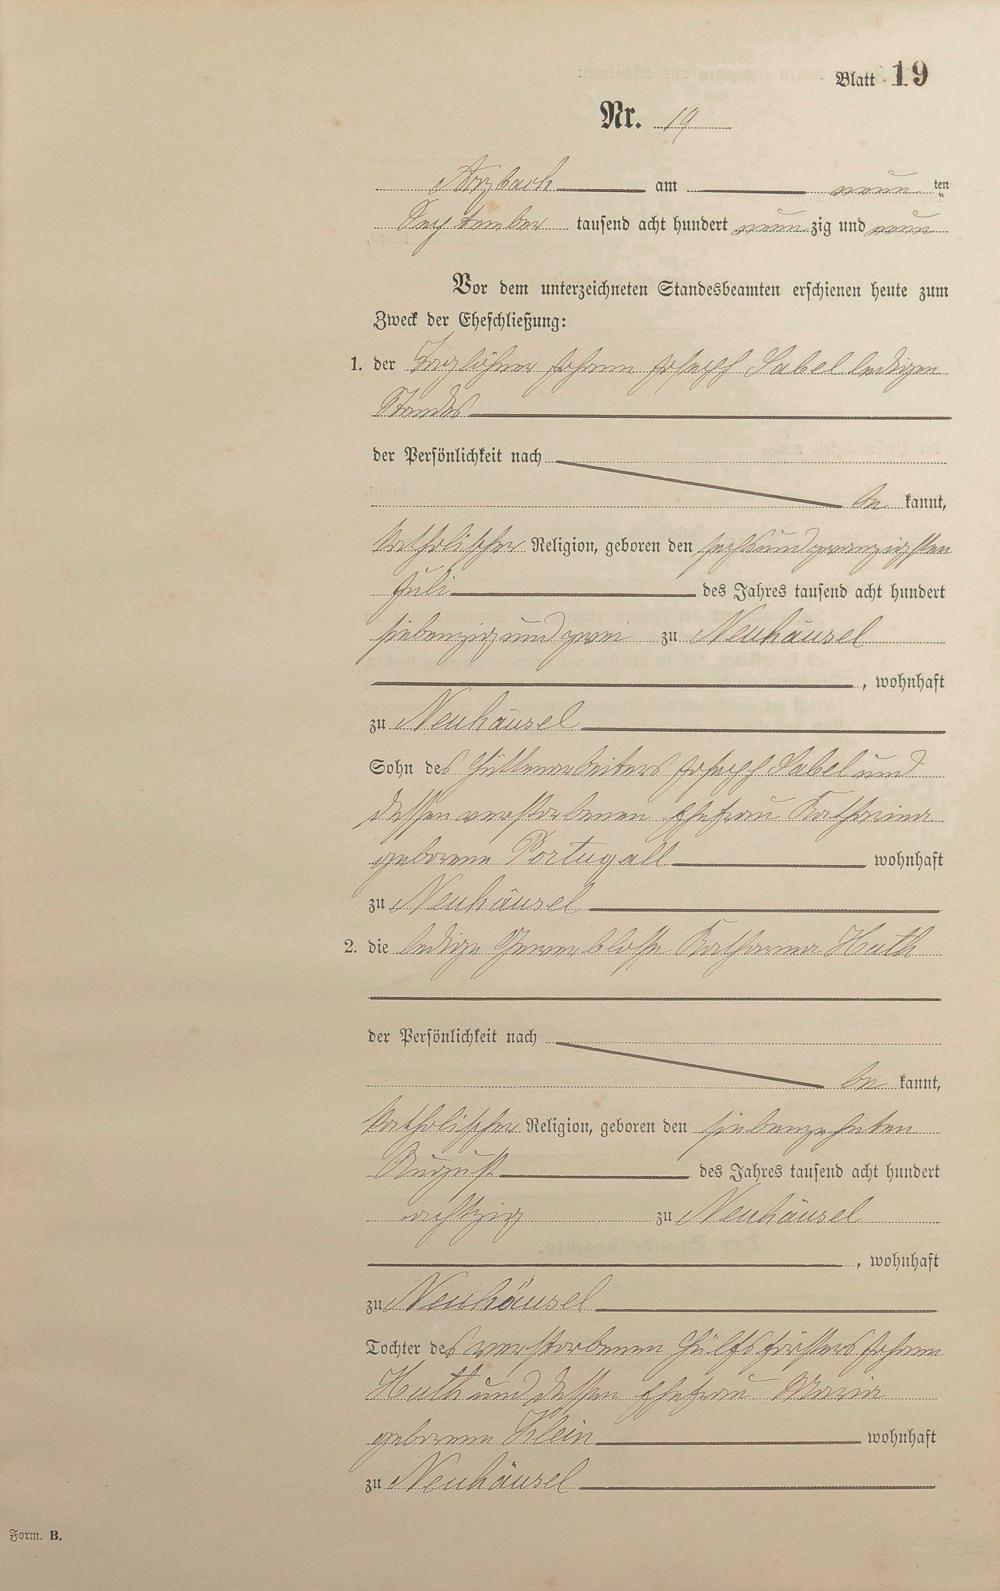 Blatt 19
Nr. 19
Arzbach am neun ten
September tausend acht hundert neun zig und neun
Vor dem unterzeichneten Standesbeamten erschienen heute zum
Zweck der Eheschließung:
1. der Taglöhner Johann Joseph Sabel ledigen
Standes
der Persönlichkeit nach
be kannt,
katholischer Religion, geboren den sechsundzwanzigsten
Juli des Jahres tausend acht hundert
siebenzig und zwei zu Neuhäusel
, wohnhaft
zu Neuhäusel
Sohn des Hüttenarbeiters Joseph Sabel und
dessen verstorbenen Ehefrau Katharina
geborene Portugall wohnhaft
zu Neuhäusel
2. die ledige Gewerblose Katharina Huth
der Persönlichkeit nach
be kannt,
katholischer Religion, geboren den siebenzehnten
August des Jahres tausend acht hundert
achtzig zu Neuhäusel
, wohnhaft
zu Neuhäusel
Tochter des verstorbenen Hülfsförsters Johann
Huth und dessen Ehefrau Maria
geborene Klein wohnhaft
zu Neuhäusel
Form. B.